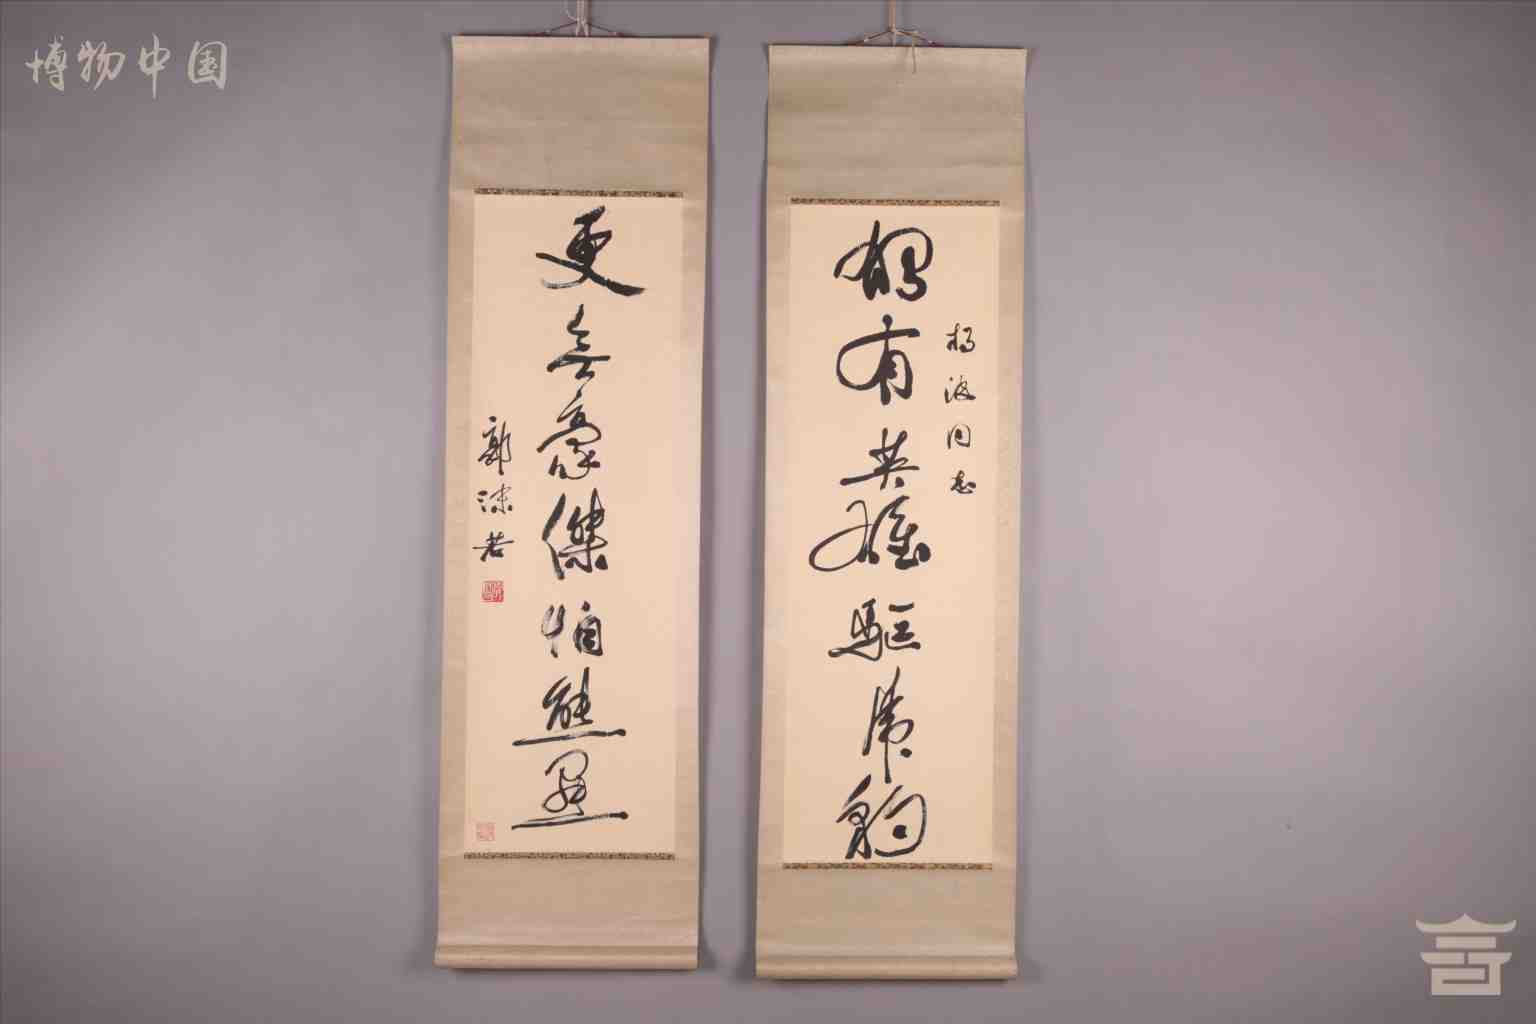 博物中国
楊波同志
獨有英雄驅虎豹
更無豪傑怕熊羆
郭沫若